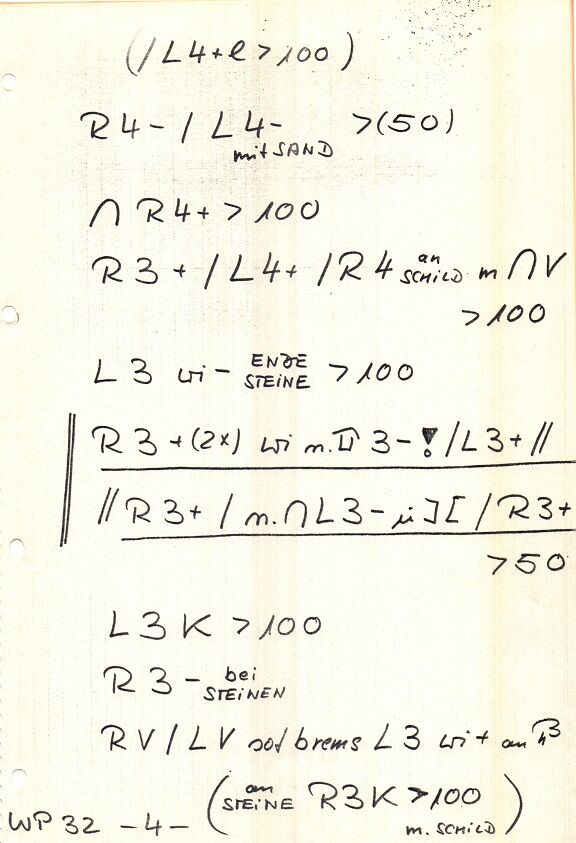 (/L4+e>100)
R4-/L4- >(50)
mit SAND
∩ R4+ > 100
R3+/L4+/R4 an SCHILD m ∩ V
>100
L3 wi- ENDE STEINE >100
R3+(2x) wi n. 3-!/L3+//
//R3+/n.∩L3- ][/R3+
>50
L3K >100
R3- bei STEINEN
RV/LV sof brems L3 wi+ an
(an STEINE R3K >100
m. SCHILD)
WP32 -4-